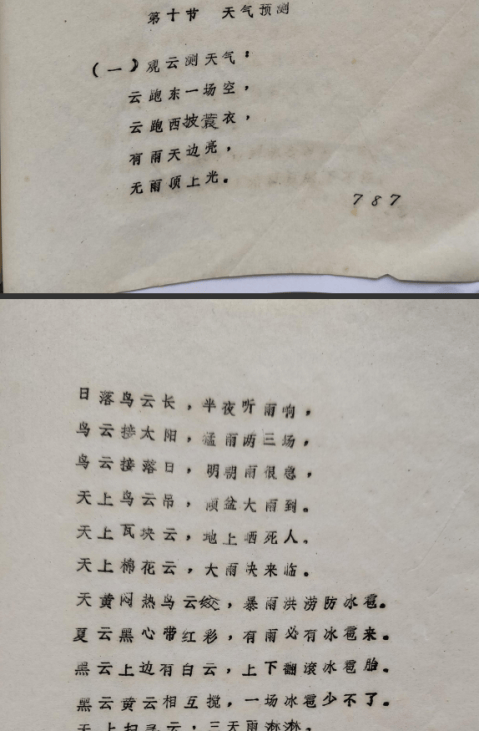 第十节 天气预测
(一)观云测天气：
云跑东一场空，
云跑西披蓑衣，
有雨天边亮，
无雨顶上光。
787
日落鸟云长，半夜听雨响，
鸟云接太阳，猛雨两三场，
鸟云接落日，明朝雨很急，
天上鸟云吊，倾盆大雨到。
天上瓦块云，地上晒死人。
天上棉花云，大雨快来临。
天黄闷热鸟云绞，暴雨洪涝防冰雹。
夏云黑心带红彩，有雨必有冰雹来。
黑云上边有白云，上下翻滚冰雹胎。
黑云黄云相互搅，一场冰雹少不了。
天上扫云，三天雨淋淋。